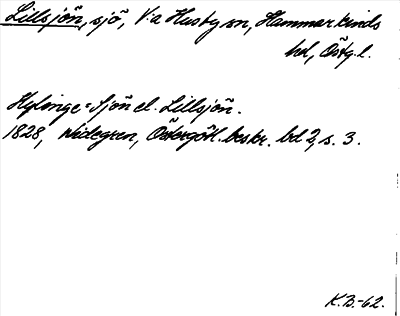 Lillsjön, sjö, V:a Husby sn, Hammarkinds
hd, Östg.l.
Hylinge-Sjön el. Lillsjön.
1828, Widegren, Östergötl. beskr. bd 2, s. 3.
K.B.-62.